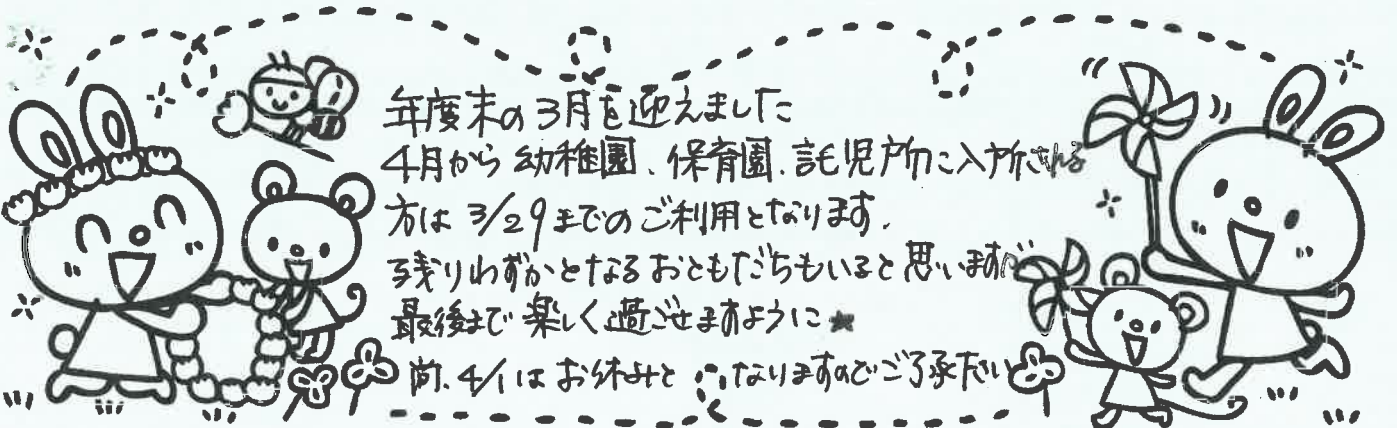 年度末の3月を迎えました
4月から 幼稚園、保育園、託児所に入所される
方は 3/29までのご利用となります。
残りわずかとなるおともだちもいると思いますが
最後まで 楽しく過ごせますように★
尚、4/1は お休みと なりますのでご了承下さい